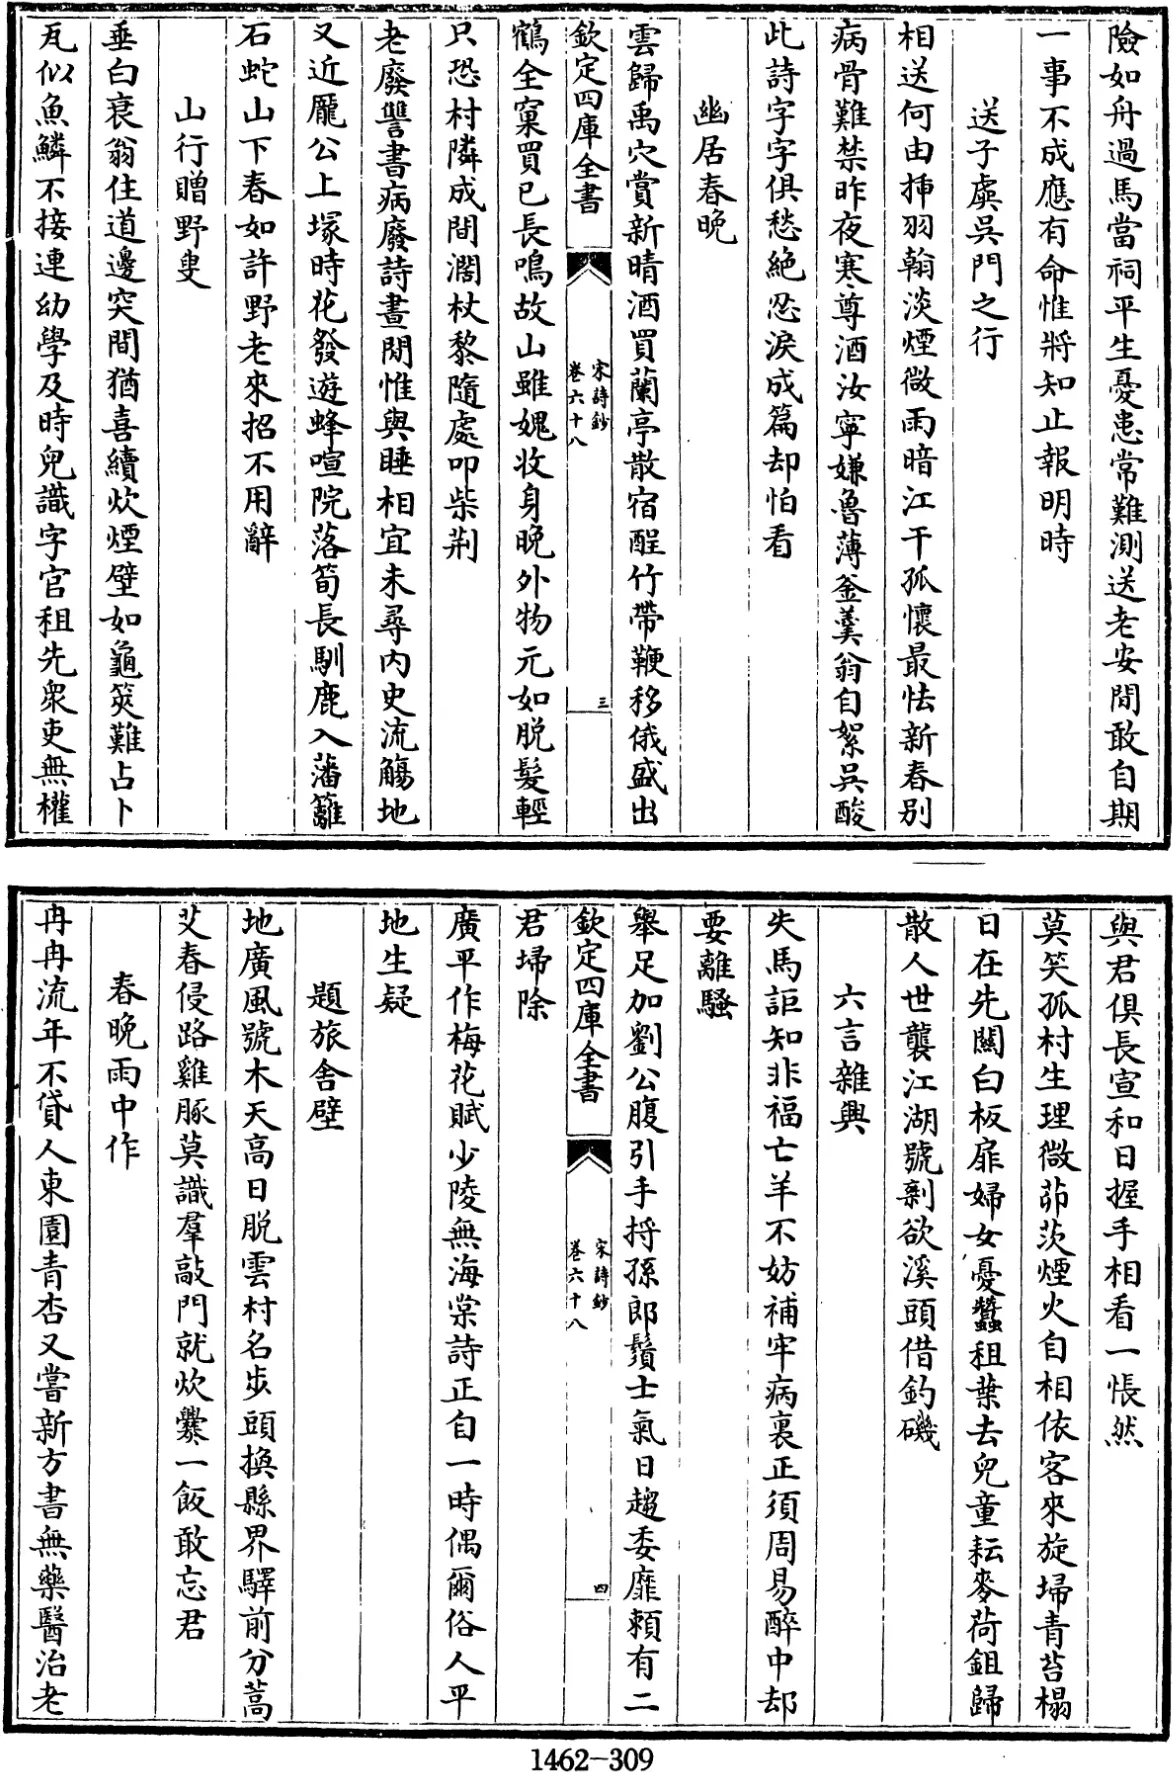 險如舟過馬當祠平生憂患常難測送老安閒敢自期
一事不成應有命惟將知止報明時
送子虡吳門之行
相送何由揷羽翰淡煙微雨暗江干孤懷最怯新春别
病骨難禁昨夜寒尊酒汝寧嫌魯薄釜羹翁自絮吳酸
此詩字字俱愁絶忍淚成篇却怕看
幽居春晚
雲歸禹穴賞新晴酒買蘭亭散宿酲竹帶鞭移俄盛出
欽定四庫全書
宋詩鈔
卷六十八
三
鶴全窠買已長鳴故山雖媿收身晚外物元如脱髪輕
只恐村隣成間濶杖藜隨處叩柴荆
老廢讐書病廢詩晝閒惟與睡相宜未尋内史流觴地
又近龎公上塚時花發遊蜂喧院落筍長馴鹿入藩籬
石蛇山下春如許野老來招不用辭
山行贈野叟
垂白衰翁住道邊突間猶喜續炊煙壁如龜筴難占卜
瓦似魚鱗不接連幼學及時兒識字官租先衆吏無權
與君俱長宣和日握手相看一悵然
莫笑孤村生理微茆茨煙火自相依客來旋埽青苔榻
日在先關白板扉婦女憂蠶租葉去兒童耘麥荷鉏歸
散人世襲江湖號剩欲溪頭借釣磯
六言雜興
失馬詎知非福亡羊不妨補牢病裏正須周易醉中却
要離騷
舉足加劉公腹引手捋孫郎鬚士氣日趨委靡頼有二
欽定四庫全書
宋詩鈔
卷六十八
四
君埽除
廣平作梅花賦少陵無海棠詩正自一時偶爾俗人平
地生疑
題旅舍壁
地廣風號木天高日脱雲村名步頭換縣界驛前分蒿
艾春侵路雞豚莫識羣敲門就炊爨一飯敢忘君
春晚雨中作
冉冉流年不貸人東園青杏又嘗新方書無藥醫治老
1462-309